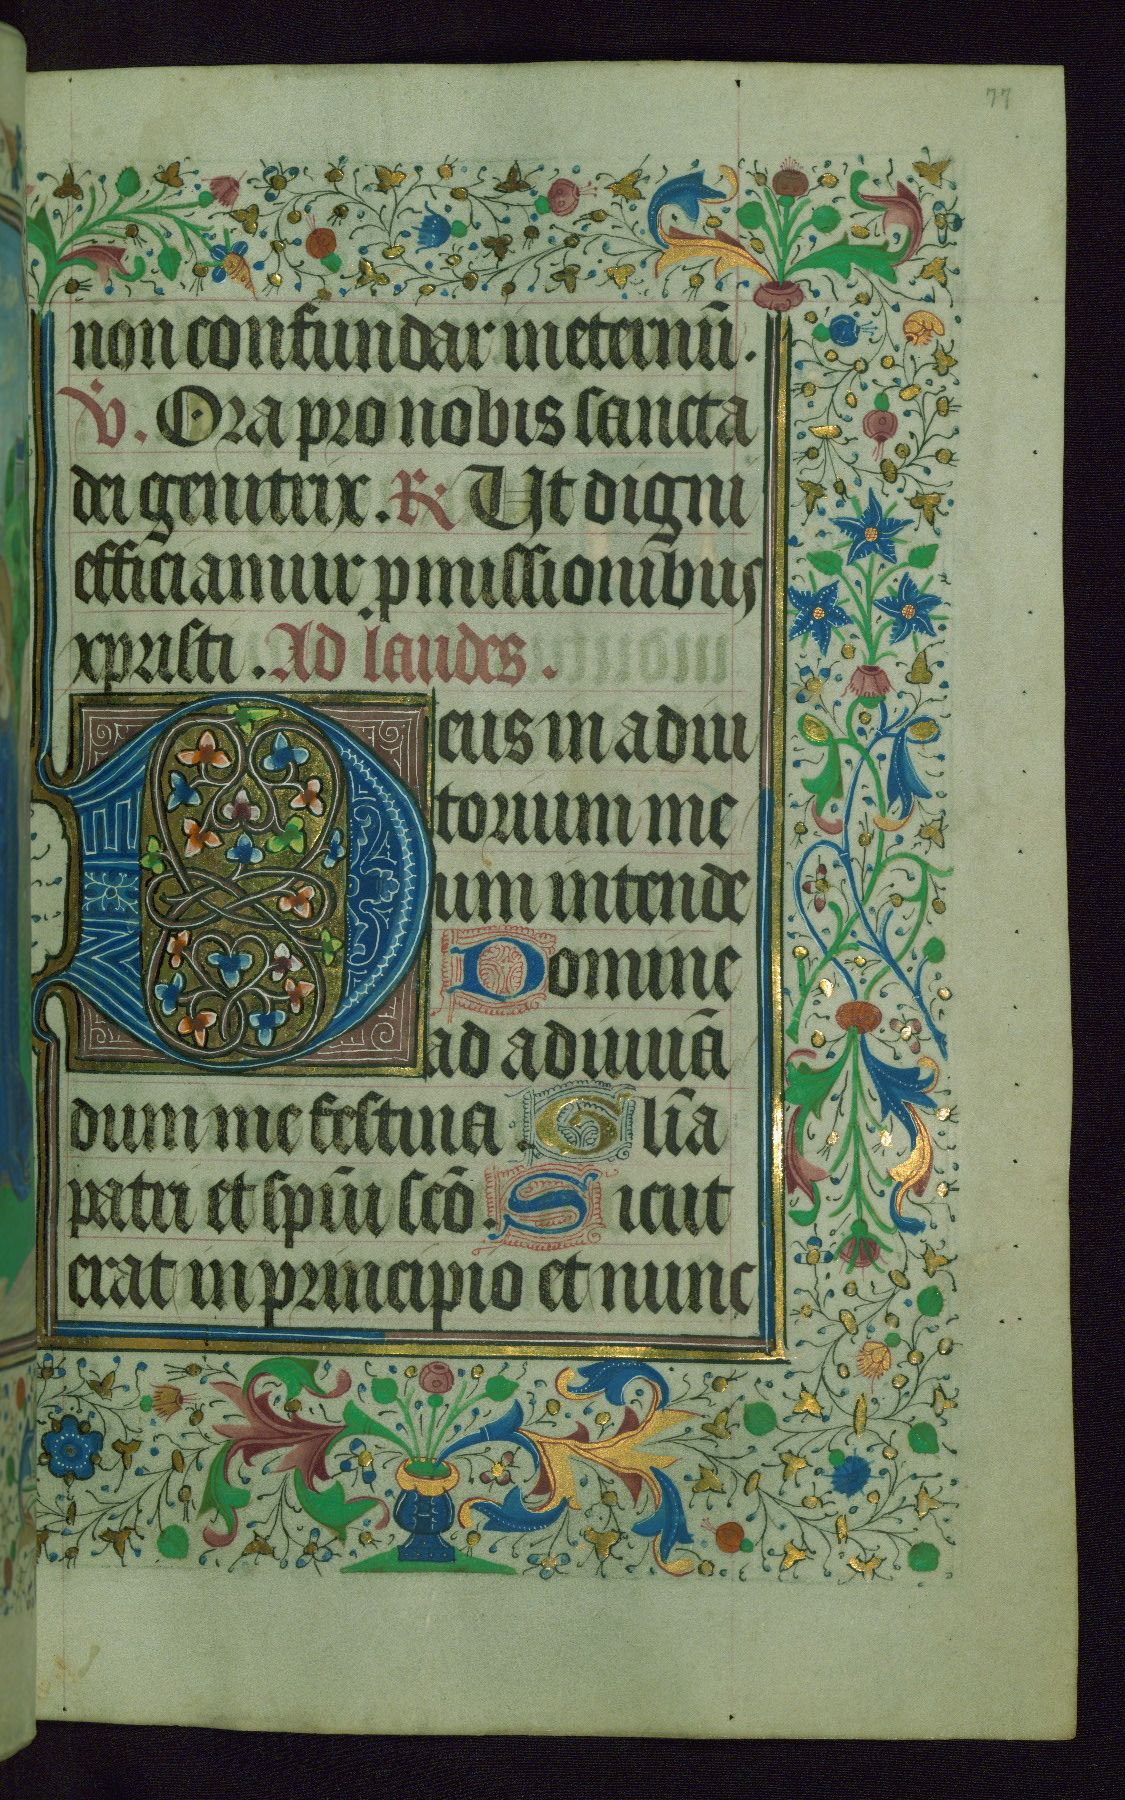 77
non confundar in eternū.
V. Ora pro nobis sancta
dei genitrix. R Ut digni
efficiamur pmissionibus
xpristi. Ad laudes.
Deus in adiu
torium me
um intende
Domine
ad adiuuā
dum me festina. Glīa
patri et spiūi scō. Sicut
erat in principio et nunc